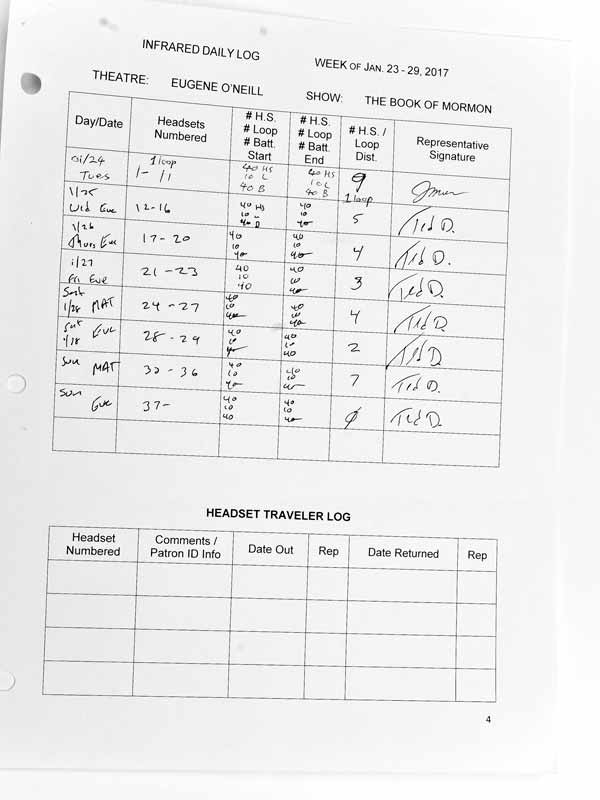 INFRARED DAILY LOG
WEEK OF JAN. 23 - 29, 2017
THEATRE: EUGENE O'NEILL
SHOW: THE BOOK OF MORMON
Day/Date
Headsets
Numbered
# H.S.
# Loop
# Batt.
Start
# H.S.
# Loop
# Batt.
End
# H.S. /
Loop
Dist.
Representative
Signature
01/24
Tues
1 loop
1- 11
40 HS
10 L
40 B
40 HS
10 L
40 B
9
1 loop
1/25
Wed Eve
12-16
40 HS
10
40
40
10
40
5
Ted D.
1/26
Thurs Eve
17-20
40
10
40
40
10
40
4
Ted D.
1/27
Fri Eve
21-23
40
10
40
40
10
40
3
Ted D.
Sat
1/28 MAT
24-27
40
10
40
40
10
40
4
Ted D.
Sat
Eve
28-29
40
10
40
40
10
40
2
Ted D.
Sun MAT
- 36
40
10
40
40
10
40
7
Ted D.
Sun
Eve
37-
40
10
40
40
10
40
Ø
Ted D.
HEADSET TRAVELER LOG
Headset
Numbered
Comments /
Patron ID Info
Date Out
Rep
Date Returned
Rep
4